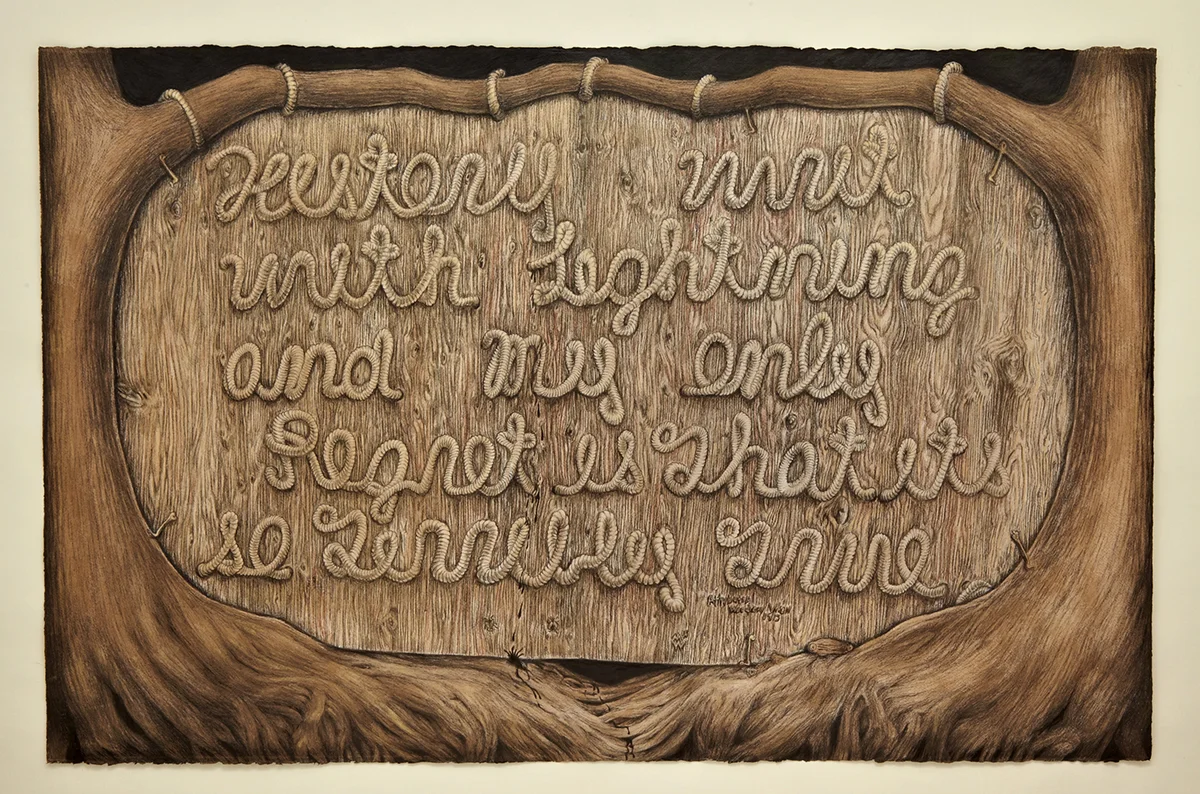 History writ
with Lightning
and My only
Regret is That its
so Terribly True